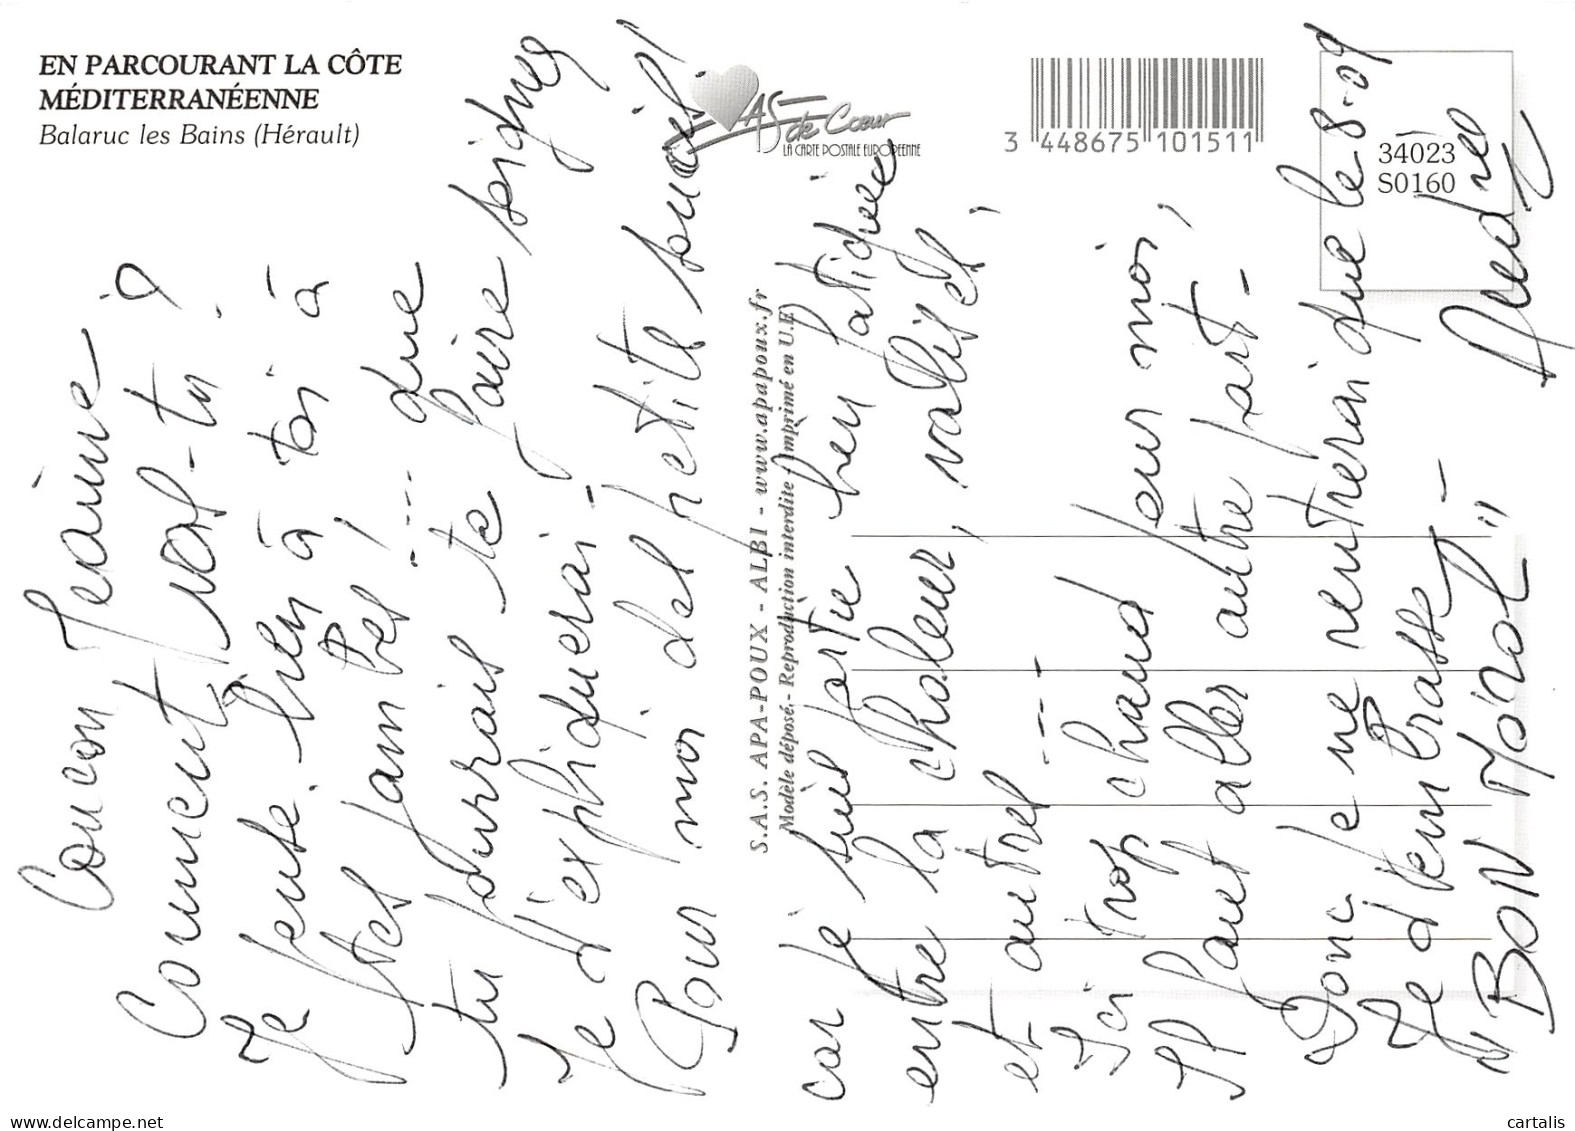 EN PARCOURANT LA CÔTE
MÉDITERRANÉENNE
Balaruc les Bains (Hérault)
AS de Cœur
LA CARTE POSTALE EUROPÉENNE
3 448675 101511
34023
S0160
S.A.S. APA-POUX - ALBI - www.apapoux.fr
Modèle déposé.- Reproduction interdite (Imprimé en U.E)
Coucou Jeanine
Comment vas-tu ?
Je pense bien à toi à
tes jambes, que
tu pourrais te faire soigner
Je t'expliquerai -
Pour moi des petits soucis !
car je suis partie bien fatiguée
entre la chaleur, valises,
et autres ----
Ici trop chaud pour moi,
Il faut aller autre part -
Donc je ne rentrerai que le 8-09
Je t'embrasse - Andrée
" BON MORAL "
cartalis
My-postcards.delcampe.net